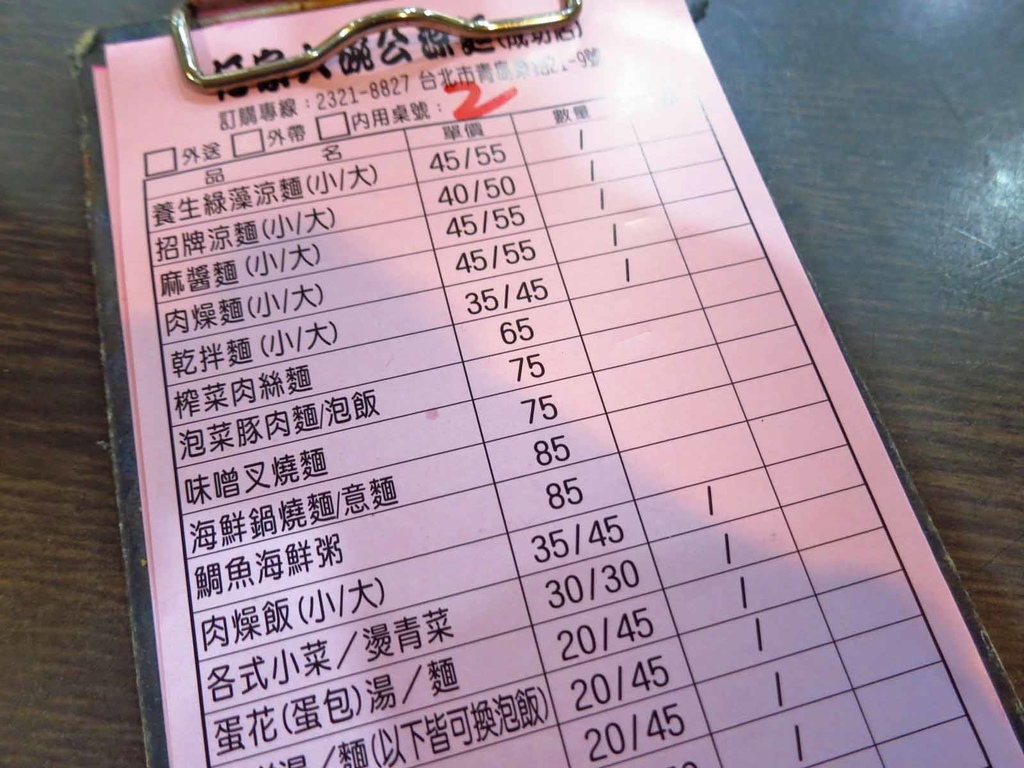 大碗公涼麵(成功店)
訂購專線:2321-8827 台北市青島東路21-9號
□外送 □外帶 □內用桌號:2
品 名 單價 數量
養生綠藻涼麵(小/大) 45/55 /
招牌涼麵(小/大) 40/50 /
麻醬麵(小/大) 45/55 /
肉燥麵(小/大) 45/55 /
乾拌麵(小/大) 35/45 /
榨菜肉絲麵 65
泡菜豚肉麵/泡飯 75
味噌叉燒麵 75
海鮮鍋燒麵/意麵 85
鯛魚海鮮粥 85
肉燥飯(小/大) 35/45 /
各式小菜/燙青菜 30/30 /
蛋花(蛋包)湯/麵 20/45 /
湯/麵(以下皆可換泡飯) 20/45 /
20/45 /
/